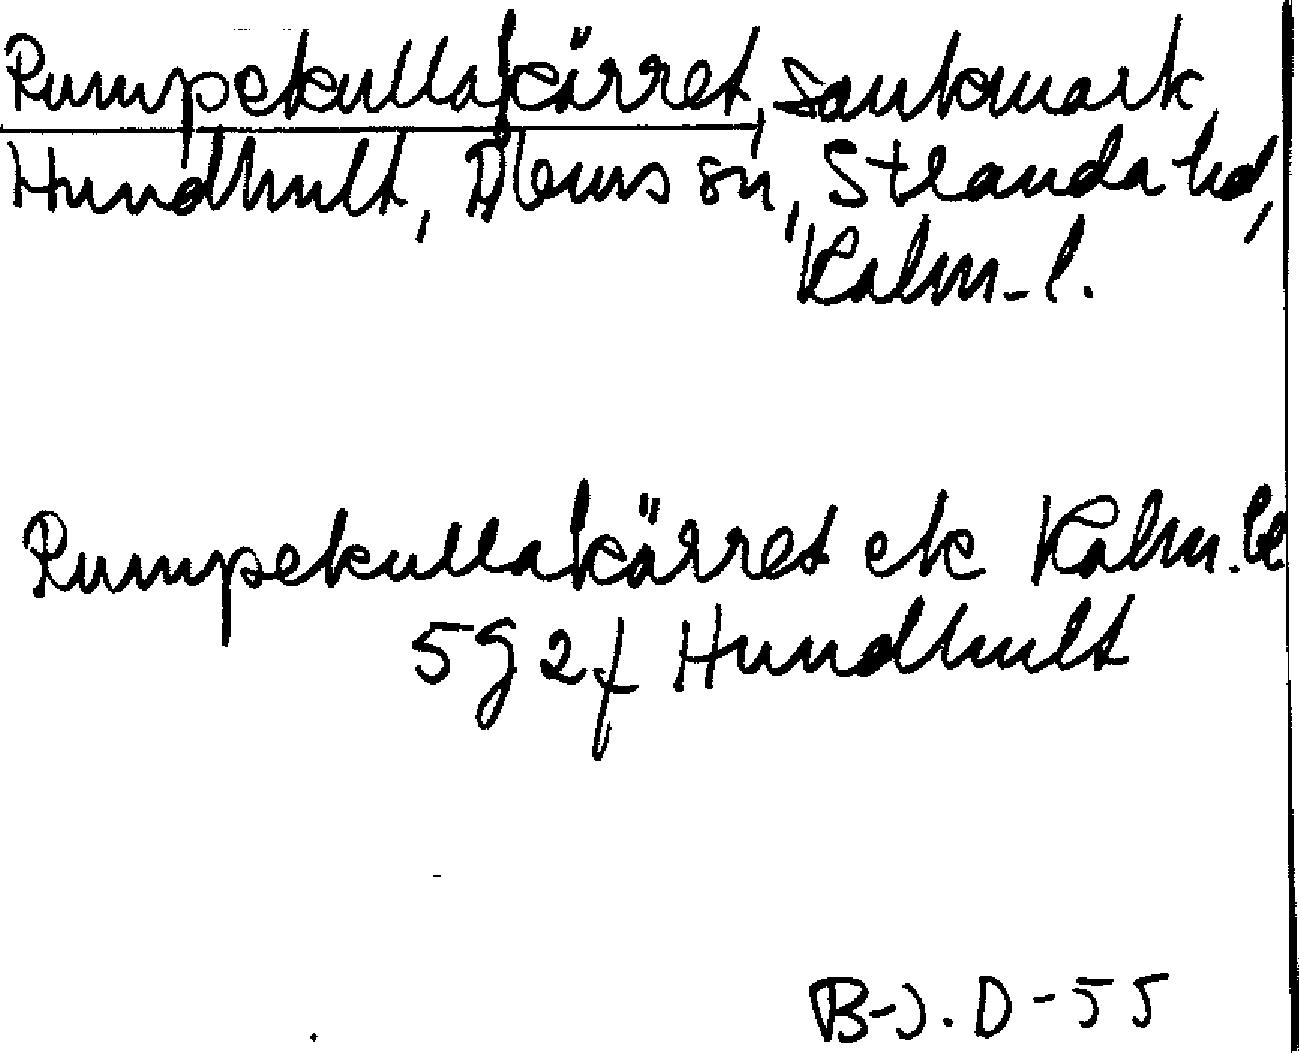 Rumpekullakärret, sankmark,
Hundhult, Döderhults sn, Stranda hd,
Kalm. l.
Rumpekullakärret ek Kalm. lä
5g 2f Hundhult
B-J. D-55